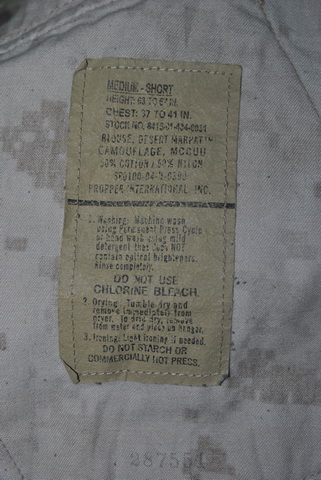 MEDIUM - SHORT
HEIGHT: 63 TO 67 IN.
CHEST: 37 TO 41 IN.
STOCK NO. 8415-01-484-0034
BLOUSE, DESERT MARPAT
CAMOUFLAGE, MCCUU
50% COTTON / 50% NYLON
SPO100-04-
PROPPER INTERNATIONAL INC.
1. Washing: Machine wash
using Permanent Press Cycle
or hand wash using mild
detergent that does NOT
contain optical brighteners.
Rinse completely.
DO NOT USE
CHLORINE BLEACH.
2. Drying: Tumble dry and
remove immediately from
dryer. To drip dry, remove
from water and place on hanger.
3. Ironing: Light ironing if needed.
DO NOT STARCH OR
COMMERCIALLY HOT PRESS.